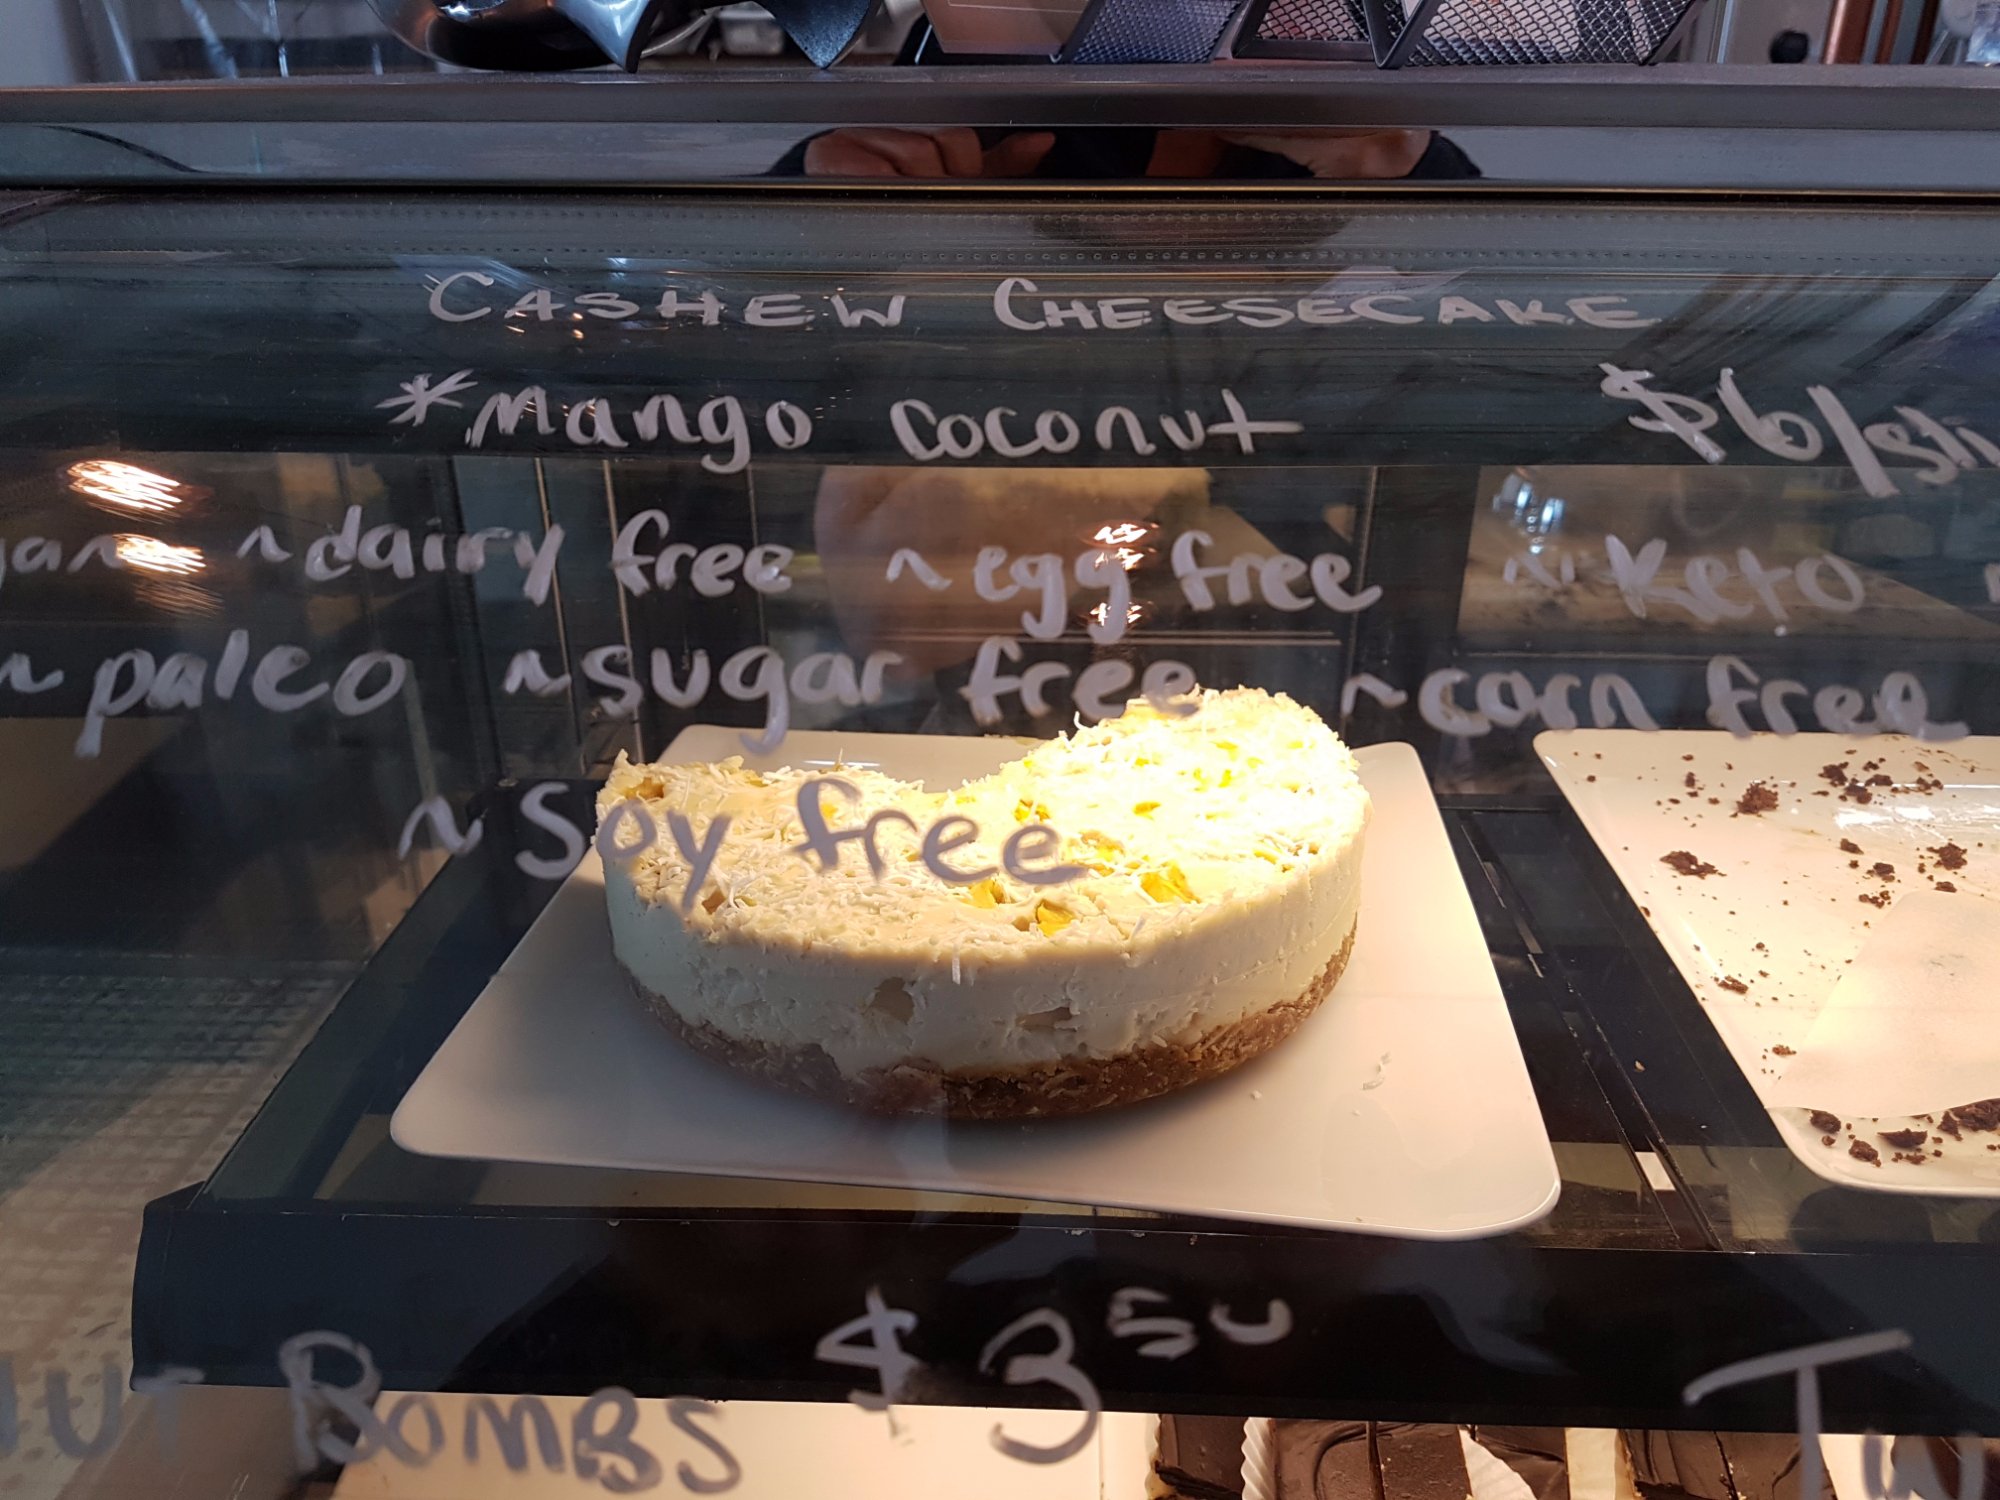 CASHEW CHEESECAKE
*Mango Coconut $6/sli
~dairy free ~egg free ~Keto
~paleo ~sugar free ~corn free
~Soy free
BOMBS $3.50